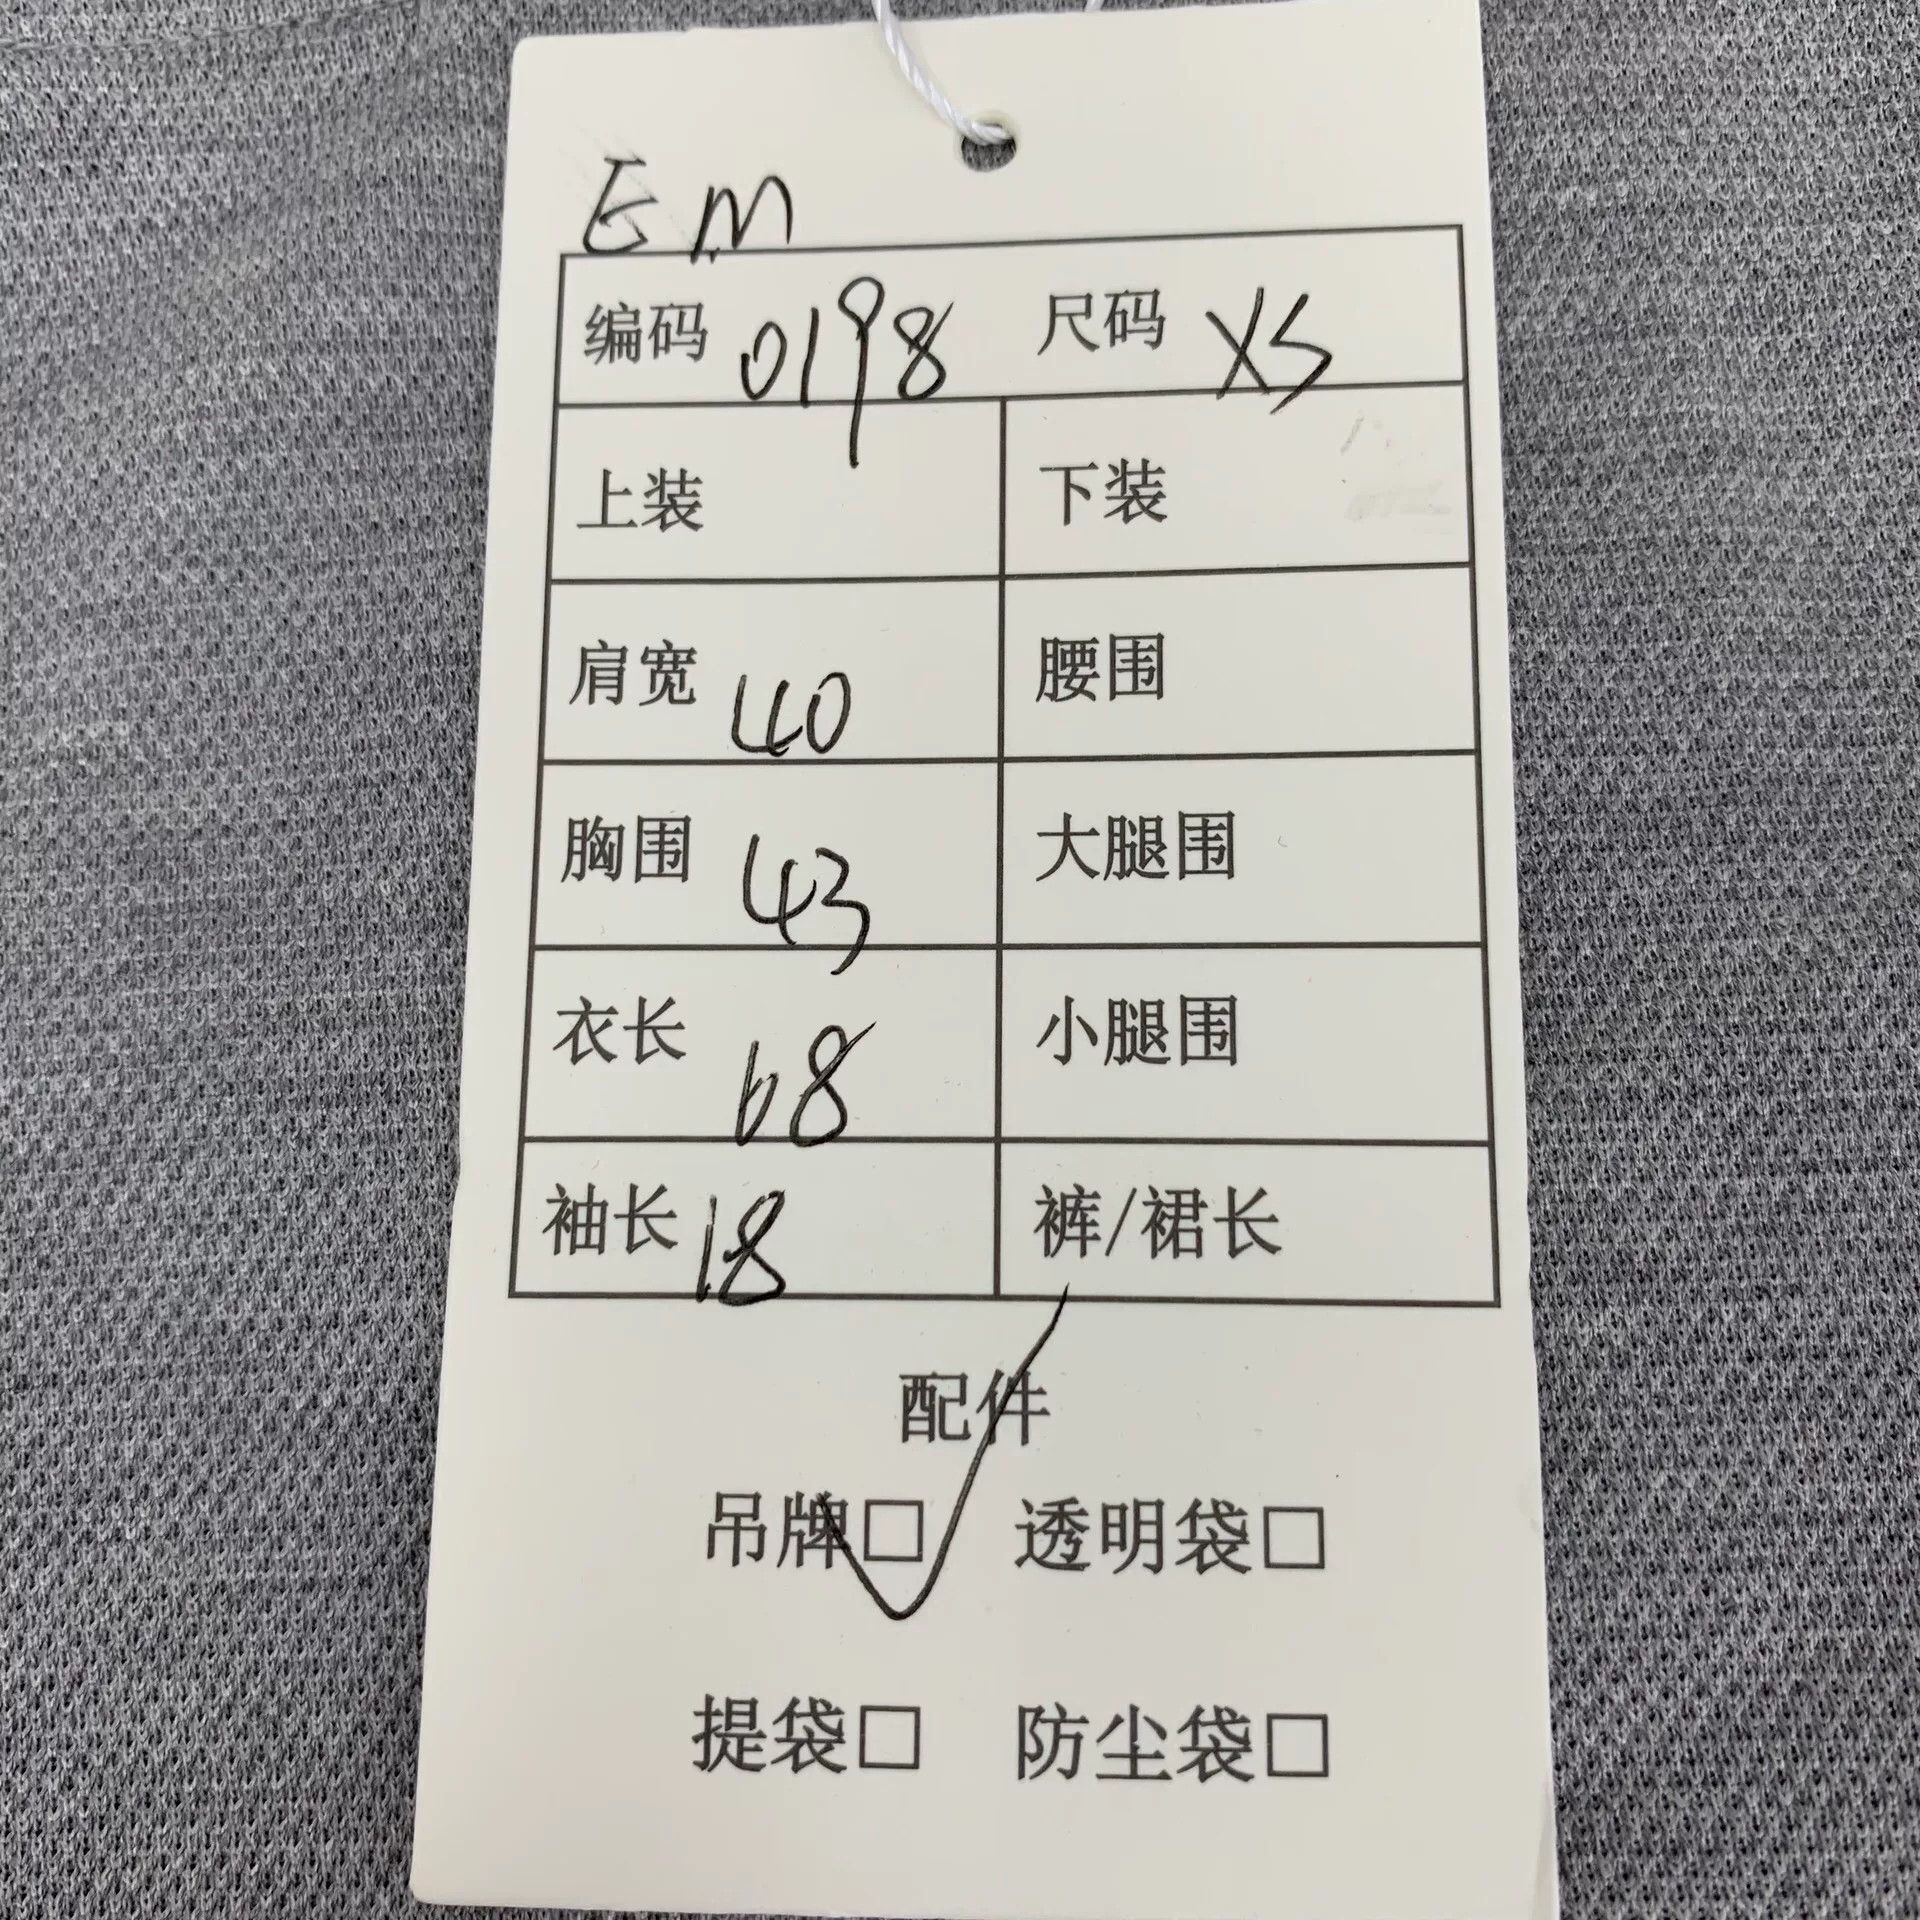 EM
编码 0198 尺码 XS
上装 下装
肩宽 40 腰围
胸围 43 大腿围
衣长 68 小腿围
袖长 18 裤/裙长
配件
吊牌□ 透明袋□
提袋□ 防尘袋□